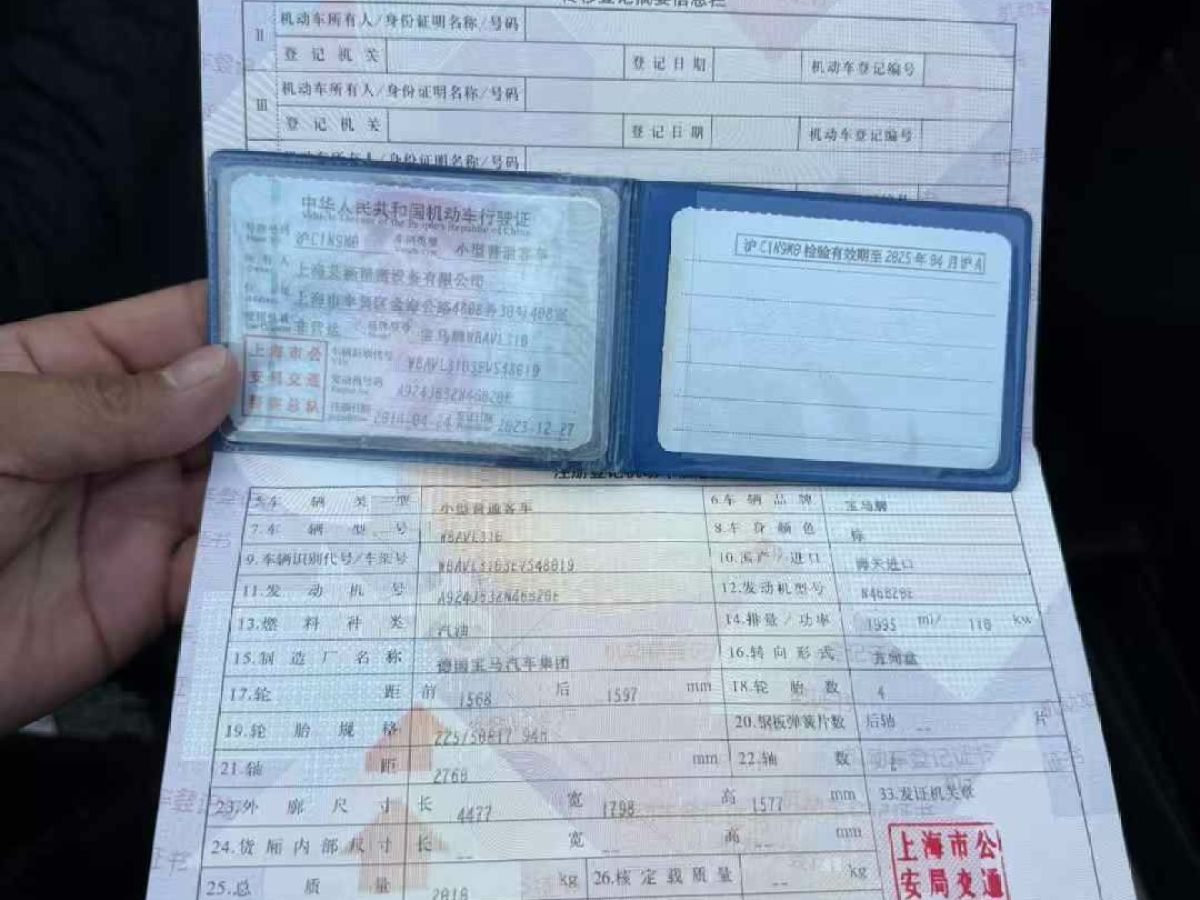 机动车所有人/身份证明名称/号码
II
登记机关 登记日期 机动车登记编号
机动车所有人/身份证明名称/号码
III
登记机关 登记日期 机动车登记编号
机动车所有人/身份证明名称/号码
中华人民共和国机动车行驶证
沪C1N9M8 车辆类型 小型普通客车
有限公司
非营运 宝马牌WBAVL310
上海市公
安局交通
警察总队
车辆识别代号 WBAVL3103EVS48019
发动机号码 A924J632N46B20E
注册日期 2014-04-24 发证日期 2023-12-27
沪C1N9M8 检验有效期至2025年04月沪A
5.车辆类型 小型普通客车 6.车辆品牌 宝马牌
7.车辆型号 WBAVL310 8.车身颜色 棕
9.车辆识别代号/车架号 WBAVL3103EVS48019 10.国产/进口 海关进口
11.发动机号 A924J632N46B20E 12.发动机型号 N46B20E
13.燃料种类 汽油 14.排量/功率 1995 ml/ 110 kw
15.制造厂名称 德国宝马汽车集团 16.转向形式 方向盘
17.轮距 前 1568 后 1597 mm 18.轮胎数 4
19.轮胎规格 225/50R17 94H 20.钢板弹簧片数 后轴 -- 片
21.轴距 2760 mm 22.轴数 2
23.外廓尺寸 长 4477 宽 1798 高 1577 mm 33.发证机关章
24.货厢内部尺寸 长 -- 宽 -- 高 -- mm
25.总质量 2010 kg 26.核定载质量 -- kg
上海市公
安局交通